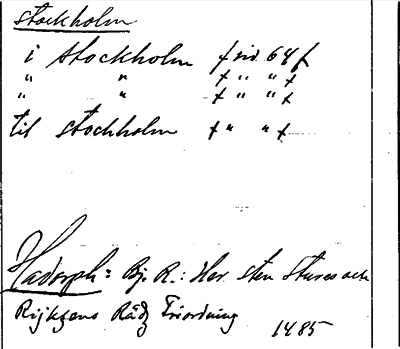 Stockholm
i Stockholm f sid. 64 f
" " f " " f
" " f " " f
til Stochholm f " " f
Hadorph: Bj. R.: Her Sten Stures och
Rijksens Rådz Friordning
1485